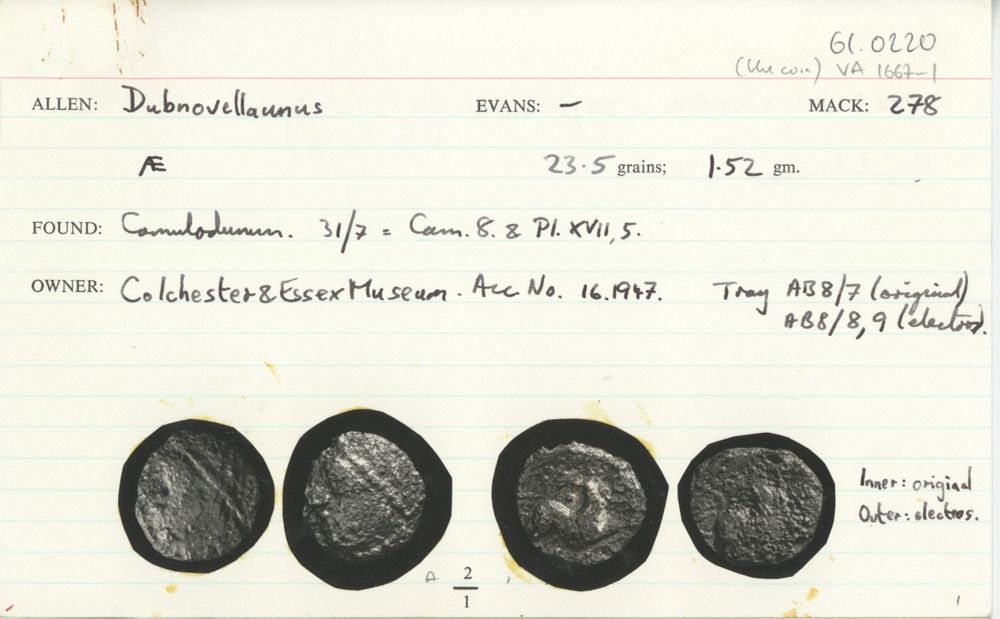 61.0220
(this coin) VA 1667-1
ALLEN: Dubnovellaunus EVANS: — MACK: 278
Æ 23.5 grains; 1.52 gm.
FOUND: Camulodunum. 31/7 = Cam. 8. & Pl. XVII, 5.
OWNER: Colchester & Essex Museum. Acc. No. 16.1947. Tray AB8/7 (original)
AB8/8, 9 (electros).
Inner: original
Outer: electros.
A 2
1
1